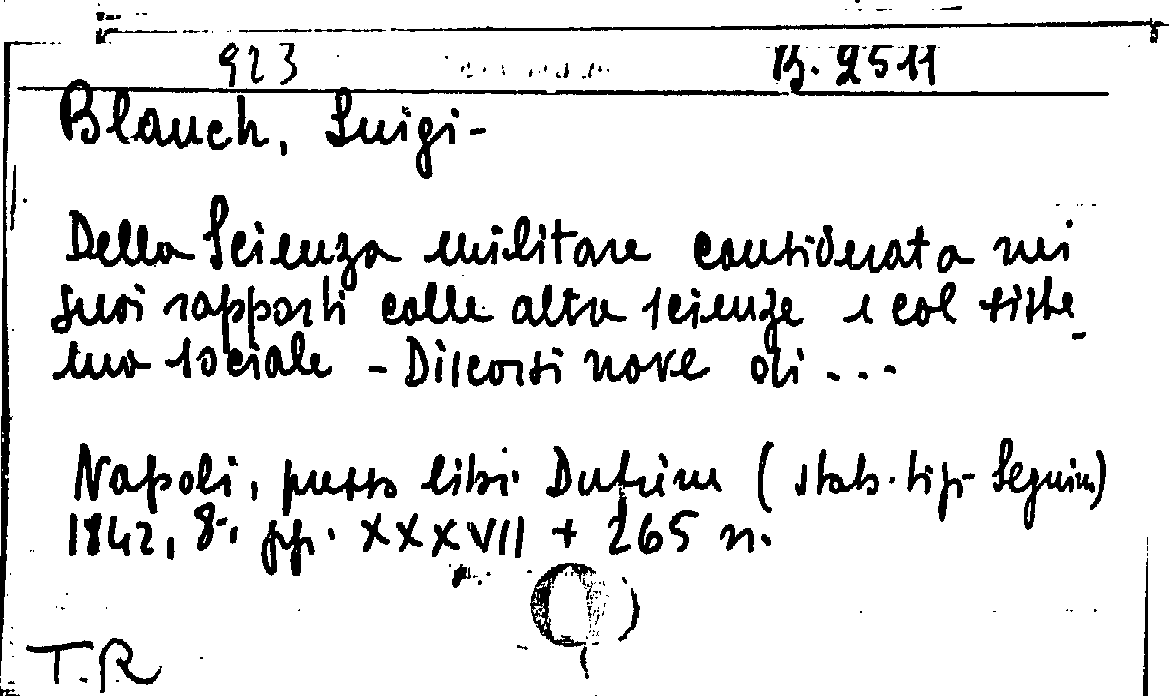 923 B. 2511
Blauch, Luigi-
Della Scienza militare considerata nei
suoi rapporti colle altre scienze e col siste_
ma sociale - Discorsi nove di ...
Napoli, presso libr. Dufrène (stab. tip. Seguin)
1842, 8°, pp. XXXVII + 265 n.
T.R